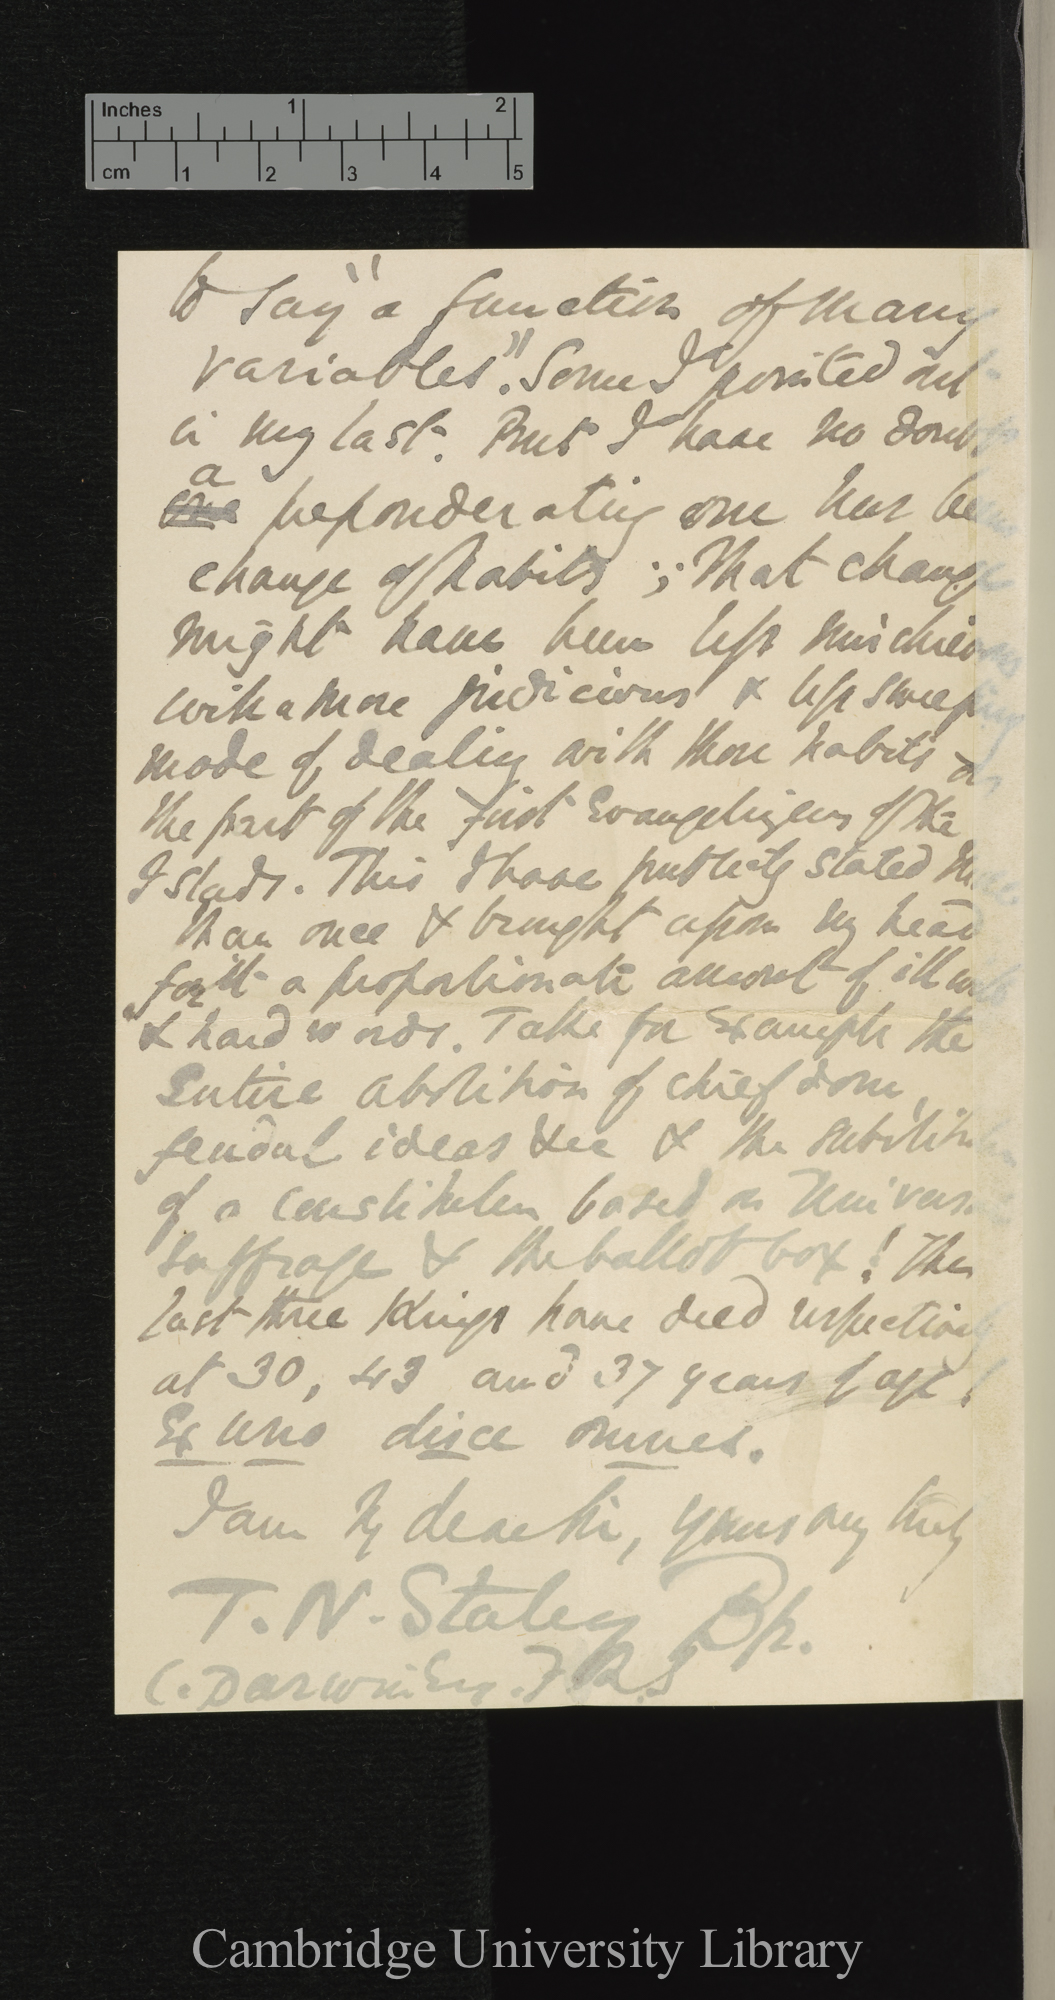 Inches 1 2
cm 1 2 3 4 5
to say "a function of many
variables". Some I pointed out
in my last. But I have no doubt
a
one preponderating one has been
change of habits ; That change
might have been less mischievous
with a more judicious & less sweeping
mode of dealing with those habits on
the part of the first Evangelizers of the
Islads. This I have publicly stated more
than once & brought upon my head
for it a proportionate amount of ill will
& hard words. Take for Example the
Entire abolition of chiefdom,
feudal ideas &cc & the substitution
of a constitution based on Universal
suffrage & the ballot box! The
last three Kings have died respectively
at 30, 43 and 37 years of age!
Ex uno disce omnes.
I am my dear Sir, yours very truly
T. N. Staley Bp.
C. Darwin Esq. F.R.S
Cambridge University Library